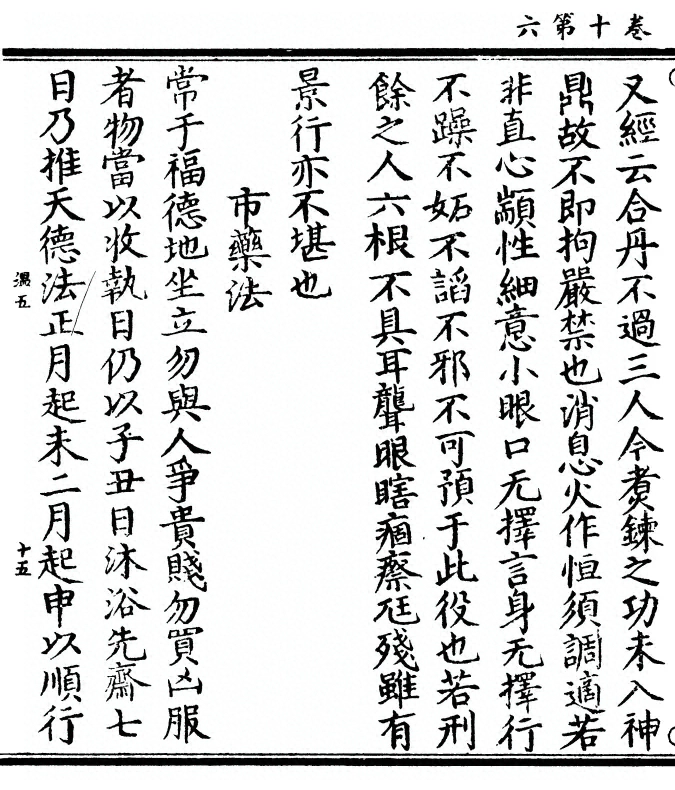 卷十第六
又經云合丹不過三人今煑鍊之功未入神
鼎故不即拘嚴禁也消息火作恒須調適若
非直心顓性細意小眼口无擇言身无擇行
不躁不妬不謟不邪不可預于此役也若刑
餘之人六根不具耳聾眼瞎痼瘵尫殘雖有
景行亦不堪也
市藥法
常于福德地坐立勿與人爭貴賤勿買凶服
者物當以收執日仍以子丑日沐浴先齋七
日乃推天德法正月起未二月起申以順行
漏五
十五